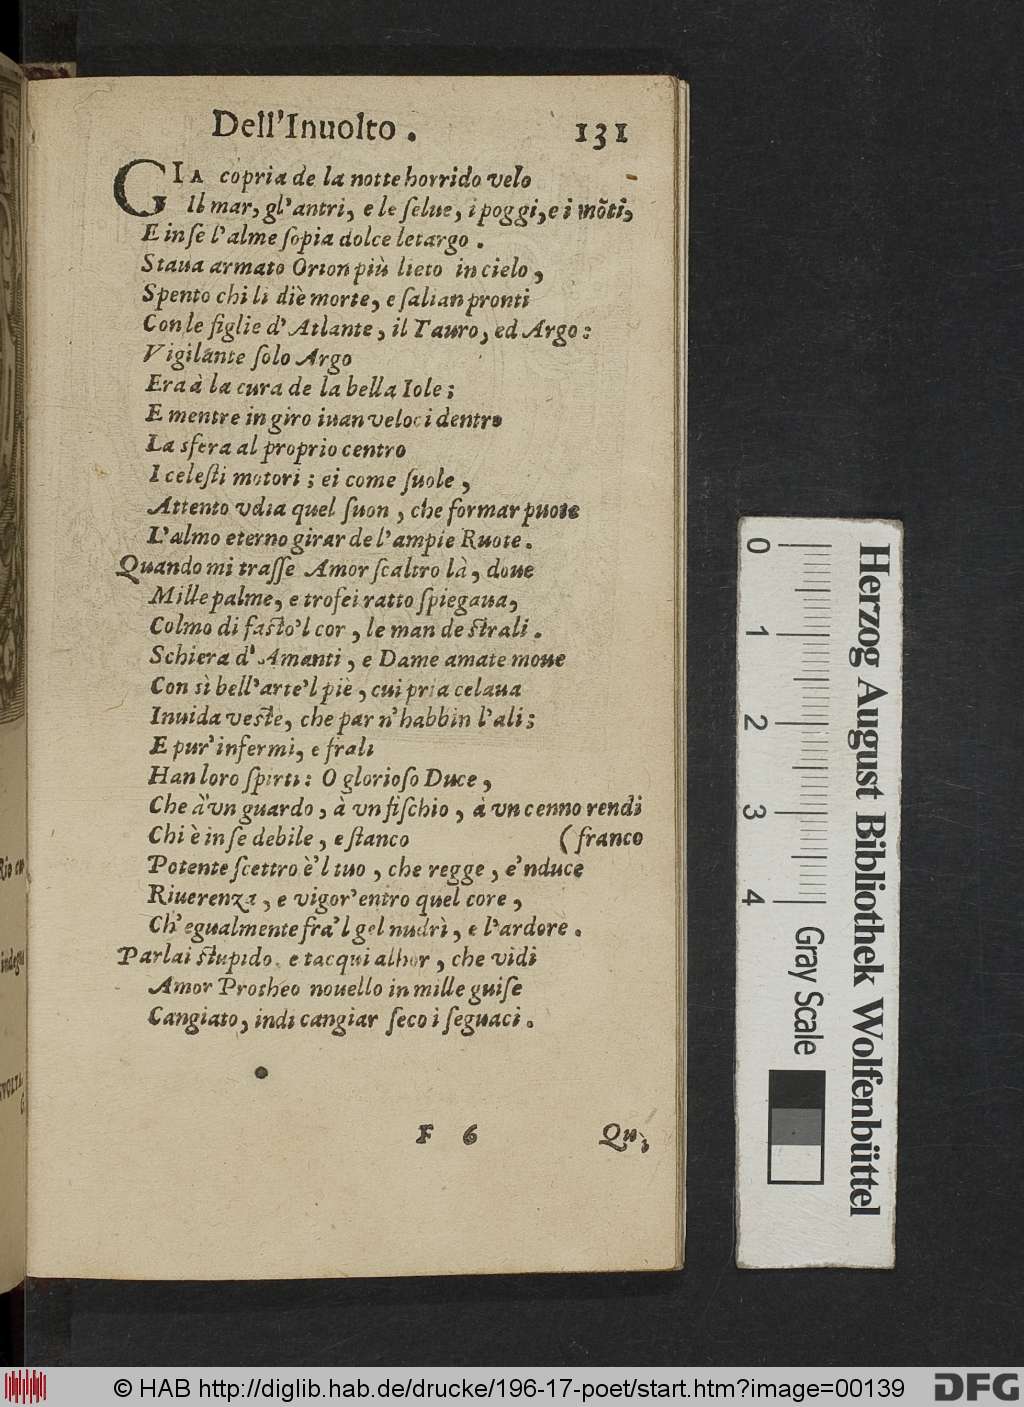 Dell'Inuolto. 131
GIA copria de la notte horrido velo
Il mar, gl'antri, e le ſelue, i poggi, e i mõti,
E in ſe l'alme ſopia dolce letargo.
Staua armato Orion più lieto in cielo,
Spento chi li diè morte, e ſalian pronti
Con le figlie d'Atlante, il Tauro, ed Argo:
Vigilante ſolo Argo
Era à la cura de la bella Iole;
E mentre in giro iuan veloci dentro
La sfera al proprio centro
I celeſti motori; ei come ſuole,
Attento vdia quel ſuon, che formar puote
L'almo eterno girar de l'ampie Ruote.
Quando mi traſſe Amor ſcaltro là, doue
Mille palme, e trofei ratto ſpiegaua,
Colmo di faſto'l cor, le man de ſtrali.
Schiera d'Amanti, e Dame amate moue
Con sì bell'arte'l piè, cui pria celaua
Inuida veſte, che par n'habbin l'ali;
E pur'infermi, e frali
Han loro ſpirti: O glorioſo Duce,
Che à vn guardo, à vn fiſchio, à vn cenno rendi
Chi è in ſe debile, e ſtanco (franco
Potente ſcettro è'l tuo, che regge, e'nduce
Riuerenza, e vigor'entro quel core,
Ch'egualmente fra'l gel nudrì, e l'ardore.
Parlai ſtupido, e tacqui alhor, che vidi
Amor Protheo nouello in mille guiſe
Cangiato, indi cangiar ſeco i ſeguaci.
F 6 Qui
0 1 2 3 4 Gray Scale
Herzog August Bibliothek Wolfenbüttel
© HAB http://diglib.hab.de/drucke/196-17-poet/start.htm?image=00139 DFG